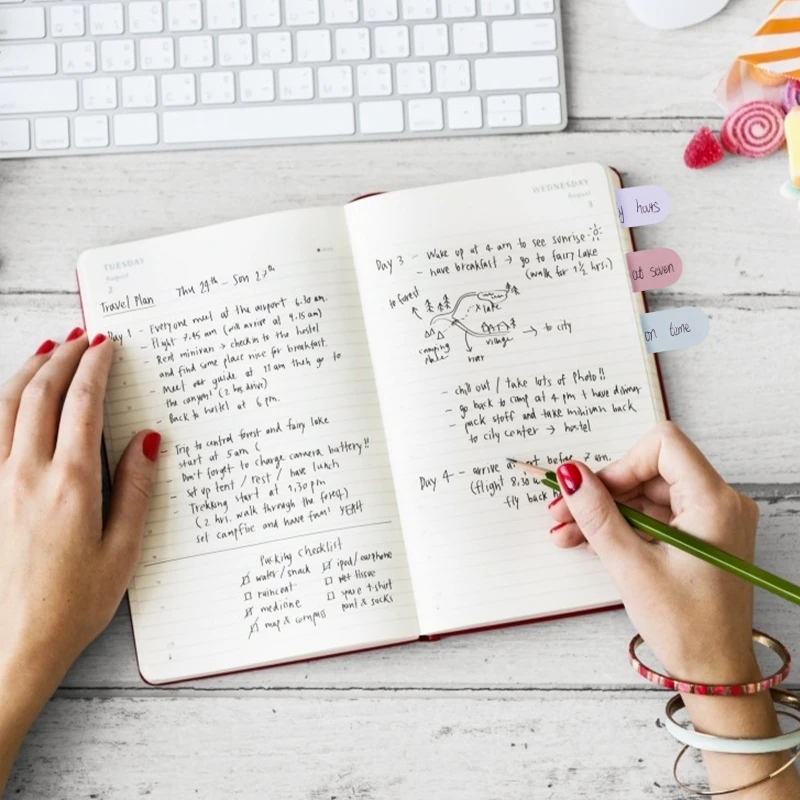 TUESDAY
August
2
Travel Plan Thu 24th - Sun 27th
Day 1 - Everyone meet at the airport 6.30 am.
- Flight 7.45 am (will arrive at 9.15 am)
- Rent minivan → check in to the hostel
and find some place nice for breakfast.
- Meet our guide at 11 am then go to
the canyon! (2 hrs drive)
- Back to hostel at 6 pm.
- Trip to central forest and fairy lake
start at 5 am (
Don't forget to charge camera battery!!
- Set up tent / rest / have lunch
- Trekking start at 1,30 pm
(2 hrs. walk through the forest)
set campfire and have fun! YEAH
Packing checklist
water/snack
raincoat
medicine
map & compass
ipod/earphone
wet tissue
spare t-shirt
pant & socks
WEDNESDAY
August
3
Day 3 - Wake up at 4 am to see sunrise
- have breakfast → go to fairy Lake
(walk for 1 1/2 hrs.)
to forest
lake
→ to city
camping
place
village
river
- chill out / take lots of photo!!
- go back to camp at 4 pm + have dinner
- pack stuff and take minivan back
to city center → hostel
Day 4 - arrive at before 7 am.
(flight 8,30
fly back
y hours
at seven
on time